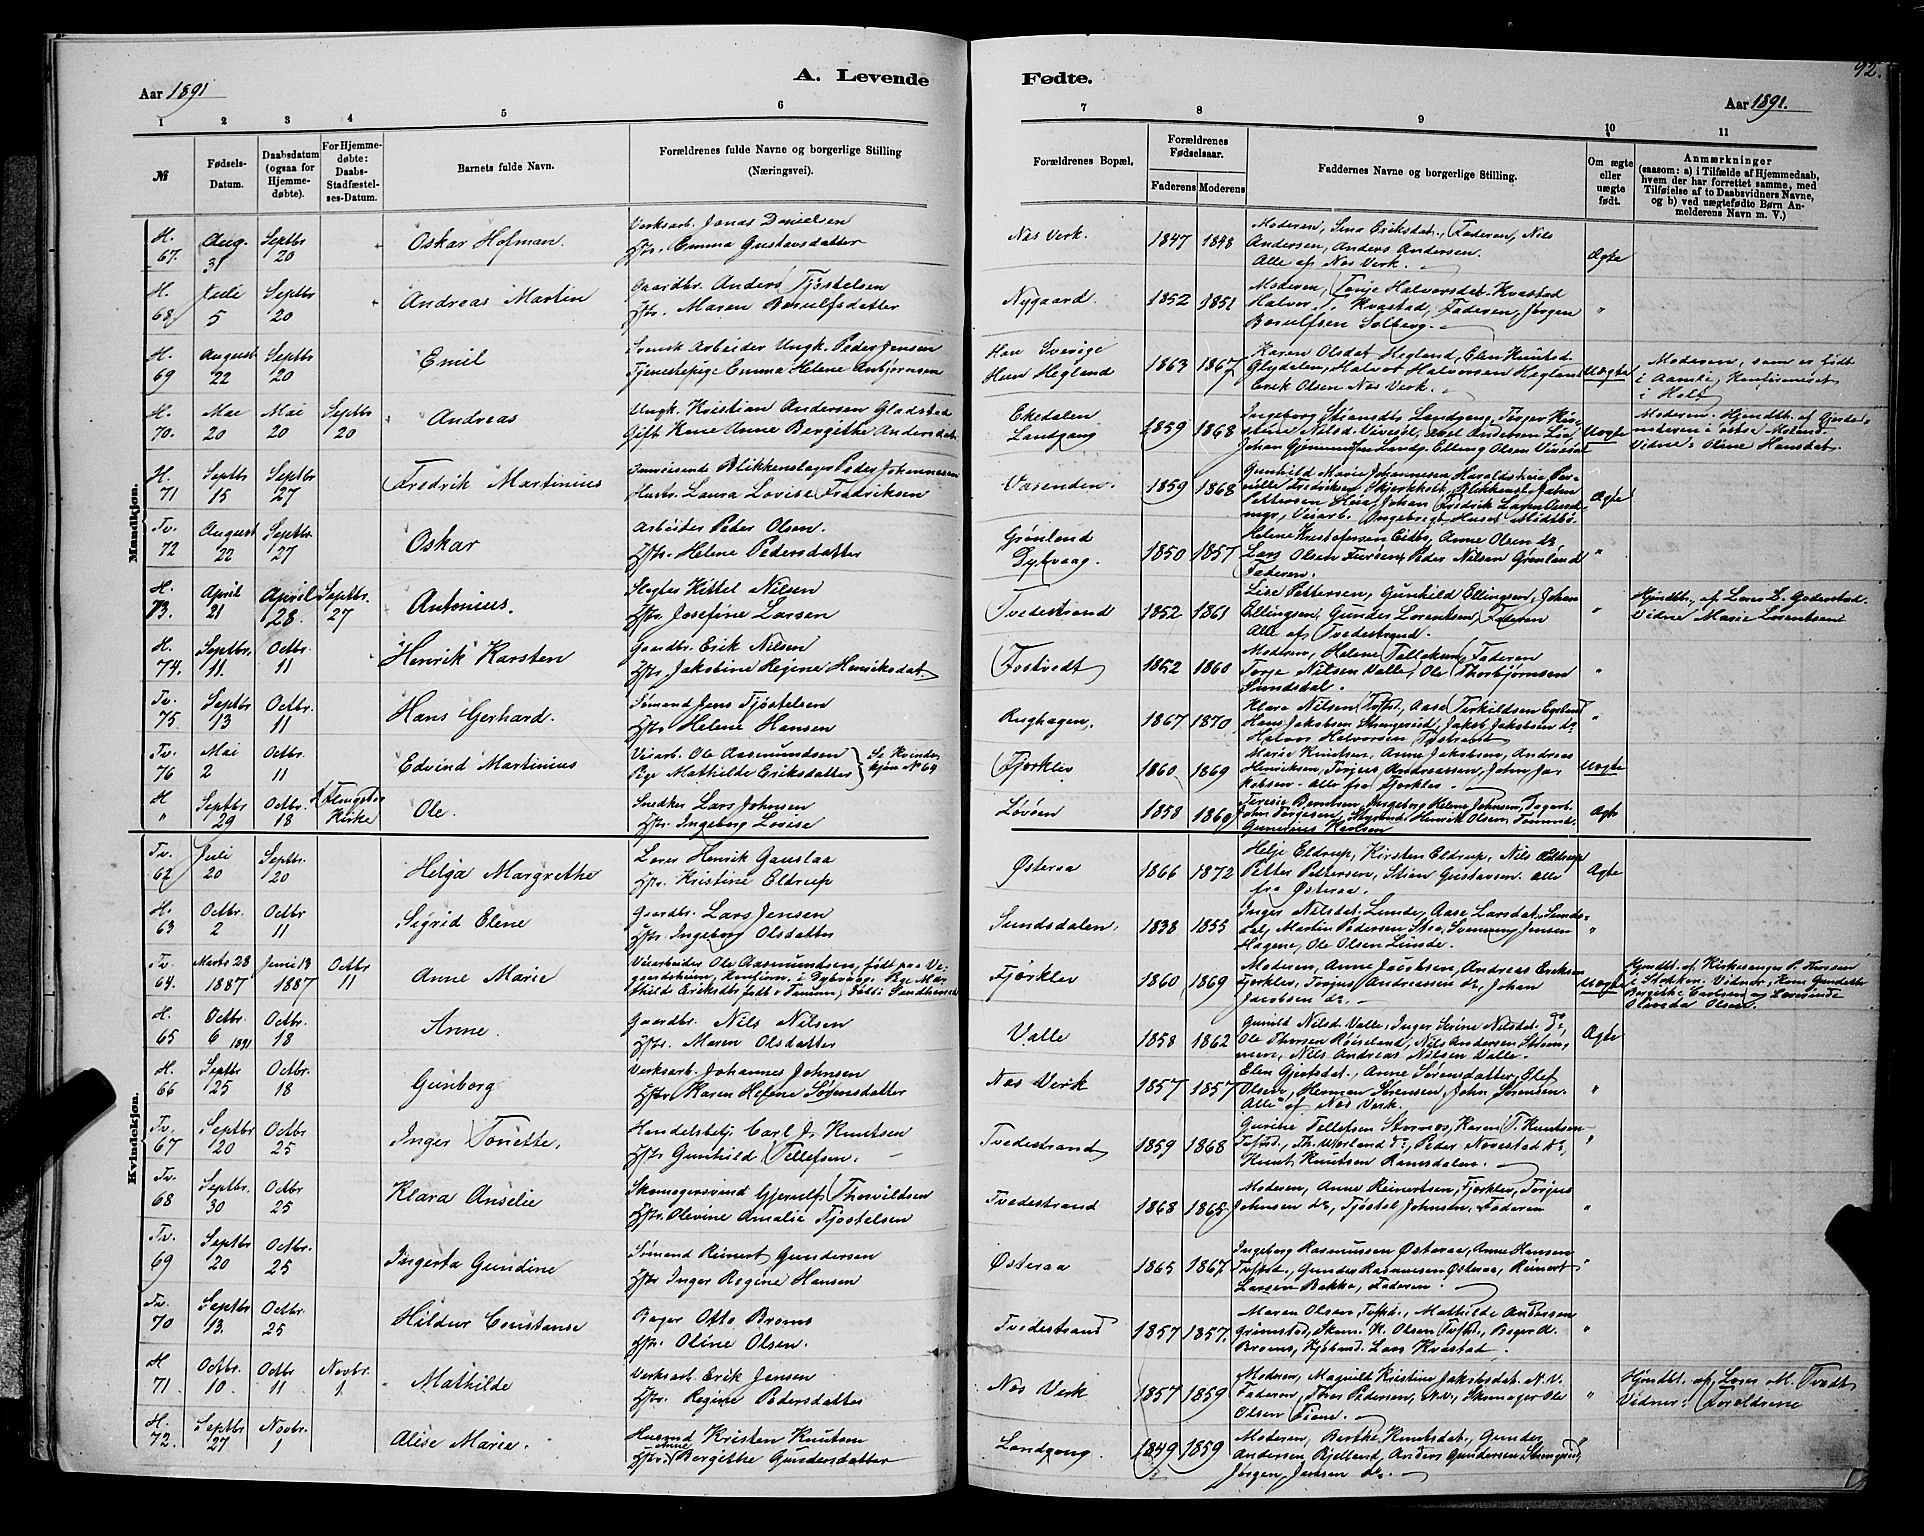 A. Levende Fødte.
92.
Aar 1891
Aar 1891.
1 2 3 4 5 6 7 8 9 10 11
№
Fødsels-Datum.
Daabsdatum (ogsaa for Hjemmedøbte).
For Hjemmedøbte: Daabs-Stadfæstelses-Datum.
Barnets fulde Navn.
Forældrenes fulde Navne og borgerlige Stilling (Næringsvei).
Forældrenes Bopæl.
Forældrenes Fødselsaar.
Faderens Moderens
Faddernes Navne og borgerlige Stilling.
Om ægte eller uægte født.
Anmærkninger (saasom: a) i Tilfælde af Hjemmedaab, hvem der har forrettet samme, med Tilføielse af to Daabsvidners Navne, og b) ved uægtefødte Børn Anmelderens Navn m. V.)
Mandkjøn.
H. 67. Aug. 31 Septbr 20 Oskar Hofman. Verksarb. Jonas Danielsen
Hstr. Emma Gustavsdatter Nas Verk. 1847 1848 Moderen, Sina Eriksdat., Faderen, Nils
Andersen, Anders Andersen.
Alle af Nas Verk. Ægte
H. 68 Juli 5 Septbr 20 Andreas Martin Gaardbr. Anders Tjøstelsen
Hstr. Maren Bosulfsdatter Nygaard. 1852 1851 Moderen, Tonje Halvorsdat. Kvastad
Halvor T. Kvastad, Faderen, Jørgen
Bosulfsen Solberg. "
H. 69 August 22 Septbr 20 Emil Svensk Arbeider Ungk. Peder Jensen
Tjenestepige Emma Helene Asbjørnsen Han Sverige
Hun Hegland 1863 1867 Karen Olsdat Hegland, Elen Knutsd.
Glydalen, Halvor Halvorsen Hegland
Erik Olsen Nas Verk. Uægte Moderen, som er født
i Aamli, Konfirmeret
i Holt
H. 70. Mai 20 Mai 20 Septbr 20 Andreas Ungk. Kristian Andersen Gladstad
Gift Kone Anne Bergithe Andersdat. Ekedalen
Landgang 1859 1868 Ingeborg Landgang, Uægte Moderen. Hjmdbt. af
Vidne: Oline Hansdat.
H. 71 Septbr 15 Septbr 27 Fredrik Martinius Omreisende Blikkenslager Peder Johannesen
Hustr. Laura Lovise Fredriksen Vasenden. 1859 1868 Gunhild Marie Johannesen Fredriksen Ægte
Tv. 72 August 22 Septbr. 27 Oskar Arbeider Peder Olsen.
Hstr. Helene Pedersdatter Grønland
Dybvaag. 1850 1857 Helene Kristofersen Eidbo, Anne Olsen do
Lars Olsen Furøen, Peder Nilsen Grønland
Faderen. "
H. 73. April 21 April 28. Septbr. 27 Antonius. Slagter Kittel Nilsen
Hstr. Josefine Larsen Tvedestrand 1852 1861 Lise Pettersen, Gunhild Ellingsen, Johan
Ellingsen, Gunder Lorentsen, Faderen
Alle af Tvedestrand. " Hjmdbt. af Lores L. Goderstad.
Vidne Marie Lorentsen
H. 74. Septbr. 11. Octbr. 11 Henrik Karsten Gaardbr. Erik Nilsen
Hstr. Jakobine Regine Henriksdat. Fostvedt 1852 1860 Moderen, Helene Tellefsen, Faderen
Torje Nilsen Valle, Ole Thorbjørnsen
Sundsdal. "
Tv. 75 Septbr 13 Octbr. 11 Hans Gerhard. Sømand Jens Tjøstelsen
Hstr. Helene Hansen Rughagen, 1867 1870 Klara Nilsen Tvstd., Aase Terkildsen Egeland
Hans Jakobsen Strengereid, Jakob Jakobsen do
Halvor Halvorsen Tvstrand "
Tv. 76 Mai 2 Octbr. 11 Edvind Martinius Veiarb. Ole Aasmundsen
Pige Mathilde Eriksdatter Se Kvindekjøn No 64 Fjørklev 1860 1869 Marie Knutsen, Anne Jakobsen, Andreas
Henriksen, Torjus Andreassen, John Jakobsen. Alle fra Fjørklev. Uægte
H " Septbr 29 Octbr. 18 Kirke Ole. Snedker Lars Johnsen
Hstr. Ingeborg Lovise Løvøen 1858 1860 Terese Berntsen, Ingeborg Helene Johnsen, Ægte
Kvindekjøn.
Tv. 62 Juli 20 Septbr. 20 Helga Margrethe Lores Henrik Gauslaa
Hstr. Kristine Eldrup Østeraa 1866 1872 Helje Eldrup, Kirsten Eldrup, Nils Eldrup
Petter Pettersen, Stian Gustavsen. Alle
fra Østeraa. Ægte
H. 63 Octbr. 2 Octbr 11 Sigrid Elene Gaardbr. Lars Jensen
Hstr. Ingeborg Olsdatter Sundsdalen. 1838 1855 Inger Nilsdat. Lunde, Aase Larsdat. Sundsdal, Martin Pedersen Jensen
Hagene, Ole Olsen Lunde. "
Tv. 64. Marts 28 1887 Juni 13 1887 Octbr 11 Anne Marie Veiarbeider Ole Aasmundsen, født paa Vegaardsheien, Konfirm. i Dybvaag. Pige Mathilde Eriksdtr. Fjørklev 1860 1869 Moderen, Anne Jacobsen, Andreas Eriksen
Fjørklev, Torjus Andreassen do, Johan
Jacobsen do. Uægte Hjmdbt. af Kirkesanger P. Hansen
H. 65 Octbr. 6 1891 Octbr. 18 Anne. Gaardbr. Nils Nilsen
Hstr. Maren Olsdatter Valle 1858 1862 Gunild Nilsd. Valle, Inger Serine Nilsdat. do,
Ole Thorsen Røiseland, Nils Andersen Strømmen, Nils Andreas Nilsen Valle. Ægte
H. 66 Septbr 25 Octbr. 18 Gunborg Verksarb. Johannes Johnsen
Hstr Karen Helene Sørensdatter Nas Verk 1857 1857 Elen Gjertsdat., Anne Sørensdatter, Olef
Olsen, Herman Sørensen, John Sørensen.
Alle af Nas Verk. "
Tv. 67 Septbr 20 Octbr. 25 Inger Tonette, Handelsbetj. Carl J. Knutsen
Hstr Gunhild Tellefsen. Tvedestrand 1859 1868 Gurine Tellefsen Karen T. Knutsen
Tvstrd., Th. Worland do, Peder Navestad do,
Knut Knutsen Ramsdalen. "
Tv. 68 Septbr. 30 Octbr. 25 Klara Anselie Skomagersvend Gjerulf Thorvildsen
Hstr. Olevine Amalie Tjøstelsen Tvedestrand 1868 1865 Moderen, Anne Reinertsen, Fjørklev, Torjus
Johnsen do, Tjøstel Johnsen, Faderen "
Tv. 69 Septbr 20 Octbr. 25 Ingerta Gundine Sømand Reinert Gundersen
Hstr Inger Regine Hansen Østeraa 1865 1867 Ingeborg Rasmussen Østeraa, Anne Hansen
Tvstrd., Gunder Rasmussen Østeraa, Reinert
Larsen Bakka, Faderen. "
Tv. 70 Septbr 13. Octbr. 25 Hildur Constanse Bager Otto Broms
Hstr. Oline Olsen. Tvedestrand 1857 1857. Maren Olsen, Tvstd., Mathilde Andersen
Grimstad, Skom. K. Olsen Tvstd., Bager A.
Broms, Kjøbmd. Lars Kvastad. "
H 71 Octbr. 10 Octbr. 11 Novbr. 1. Mathilde Verksarb. Erik Jensen
Hstr. Regine Pedersdatter Nas Verk 1857 1859 Moderen, Magnild Kristine Jakobsdat. N. V.
Faderen, Thor Pedersen, N.V., Skomager Ole
Olsen Fiane. " Hjmdbt. af Lores M. Tvedt
Vidner: Forældrene
H. 72. Septbr 27 Novbr. 1 Alise Marie. Husmd Kristen Knutsen
Hstr. Anne Bergithe Gundersdatter Landgang. 1849 1859 Moderen, Berthe Knutsdat., Gunder
Andersen Rjelland, Anders Gundersen
Jørgen Jensen do. "